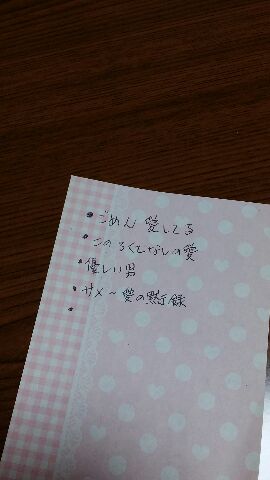 • ごめん 愛してる
• このろくでなしの愛
• 優しい男
• サメ～愛の黙示録
•